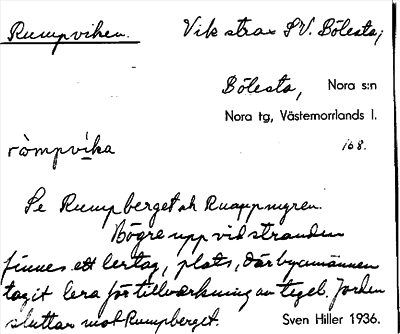 Rumpviken. Vik strax SV. Bölesta;
Bölesta, Nora s:n
Nora tg, Västernorrlands l.
ròmpvika 168.
Se Rumpberget ock Ruappmyren.
Högre upp vid stranden
finnes ett lertag, plats, där byamännen
tagit lera för tillvärkning av tegel. Jorden
sluttar mot Rumpberget. Sven Hiller 1936.